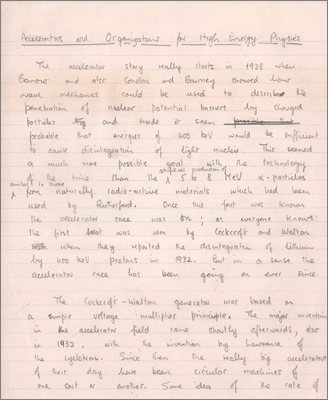 Accelerators and Organizations for High Energy Physics
The accelerator story really starts in 1928 when
Gamow and also Condon and Gurney showed how
wave mechanics could be used to describe the
penetration of nuclear potential barriers by charged
particles and made it seem
probable that energies of 400 keV would be sufficient
to cause disintegration of light nuclei. This seemed
a much more possible goal with the technology
of the time than the artificial production of 5 to 8 MeV α-particles
similar to those from naturally radio-active materials which had been
used by Rutherford. Once this fact was known
the accelerator race was on; as everyone knows
the first heat was won by Cockcroft and Walton
when they reported the disintegration of lithium
by 400 keV protons in 1932. But in a sense the
accelerator race has been going on ever since.
The Cockcroft-Walton generator was based on
a simple voltage multiplier principle. The major invention
in the accelerator field came shortly afterwards, also
in 1932, with the invention by Lawrence of
the cyclotron. Since then the really big accelerators
of their day have been circular machines of
one sort or another. Some idea of the rate of